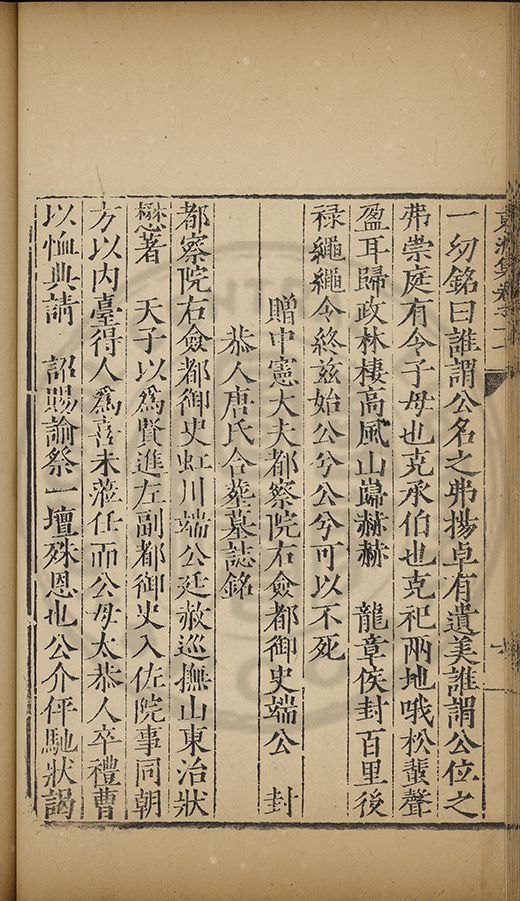 一幼銘曰誰謂公名之弗揚卓有遺美誰謂公位之
弗崇庭有令子母也克承伯也克祀兩地哦松蜚聲
盈耳歸政林棲高風山巋赫赫　龍章侯封百里後
禄繩繩令終茲始公兮公兮可以不死
贈中憲大夫都察院右僉都御史端公　封
恭人唐氏合葬墓誌銘
都察院右僉都御史虹川端公廷赦巡撫山東治狀
懋著　天子以爲賢進左副都御史入佐院事同朝
方以内臺得人爲喜未蒞任而公母太恭人卒禮曹
以恤典請　詔賜諭祭一壇殊恩也公介伻馳狀謁